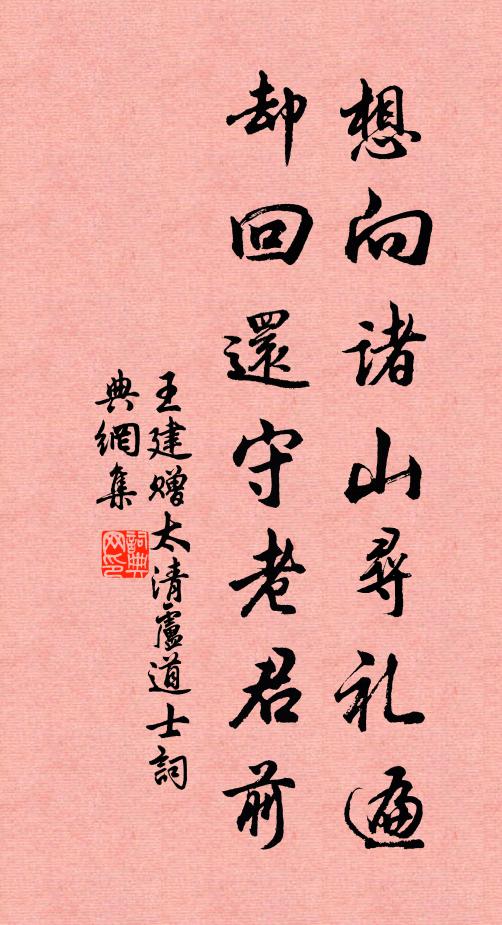 想向诸山尋礼遍
却回還守老君前
王建赠太清盧道士詞
典網集
詞典
网印